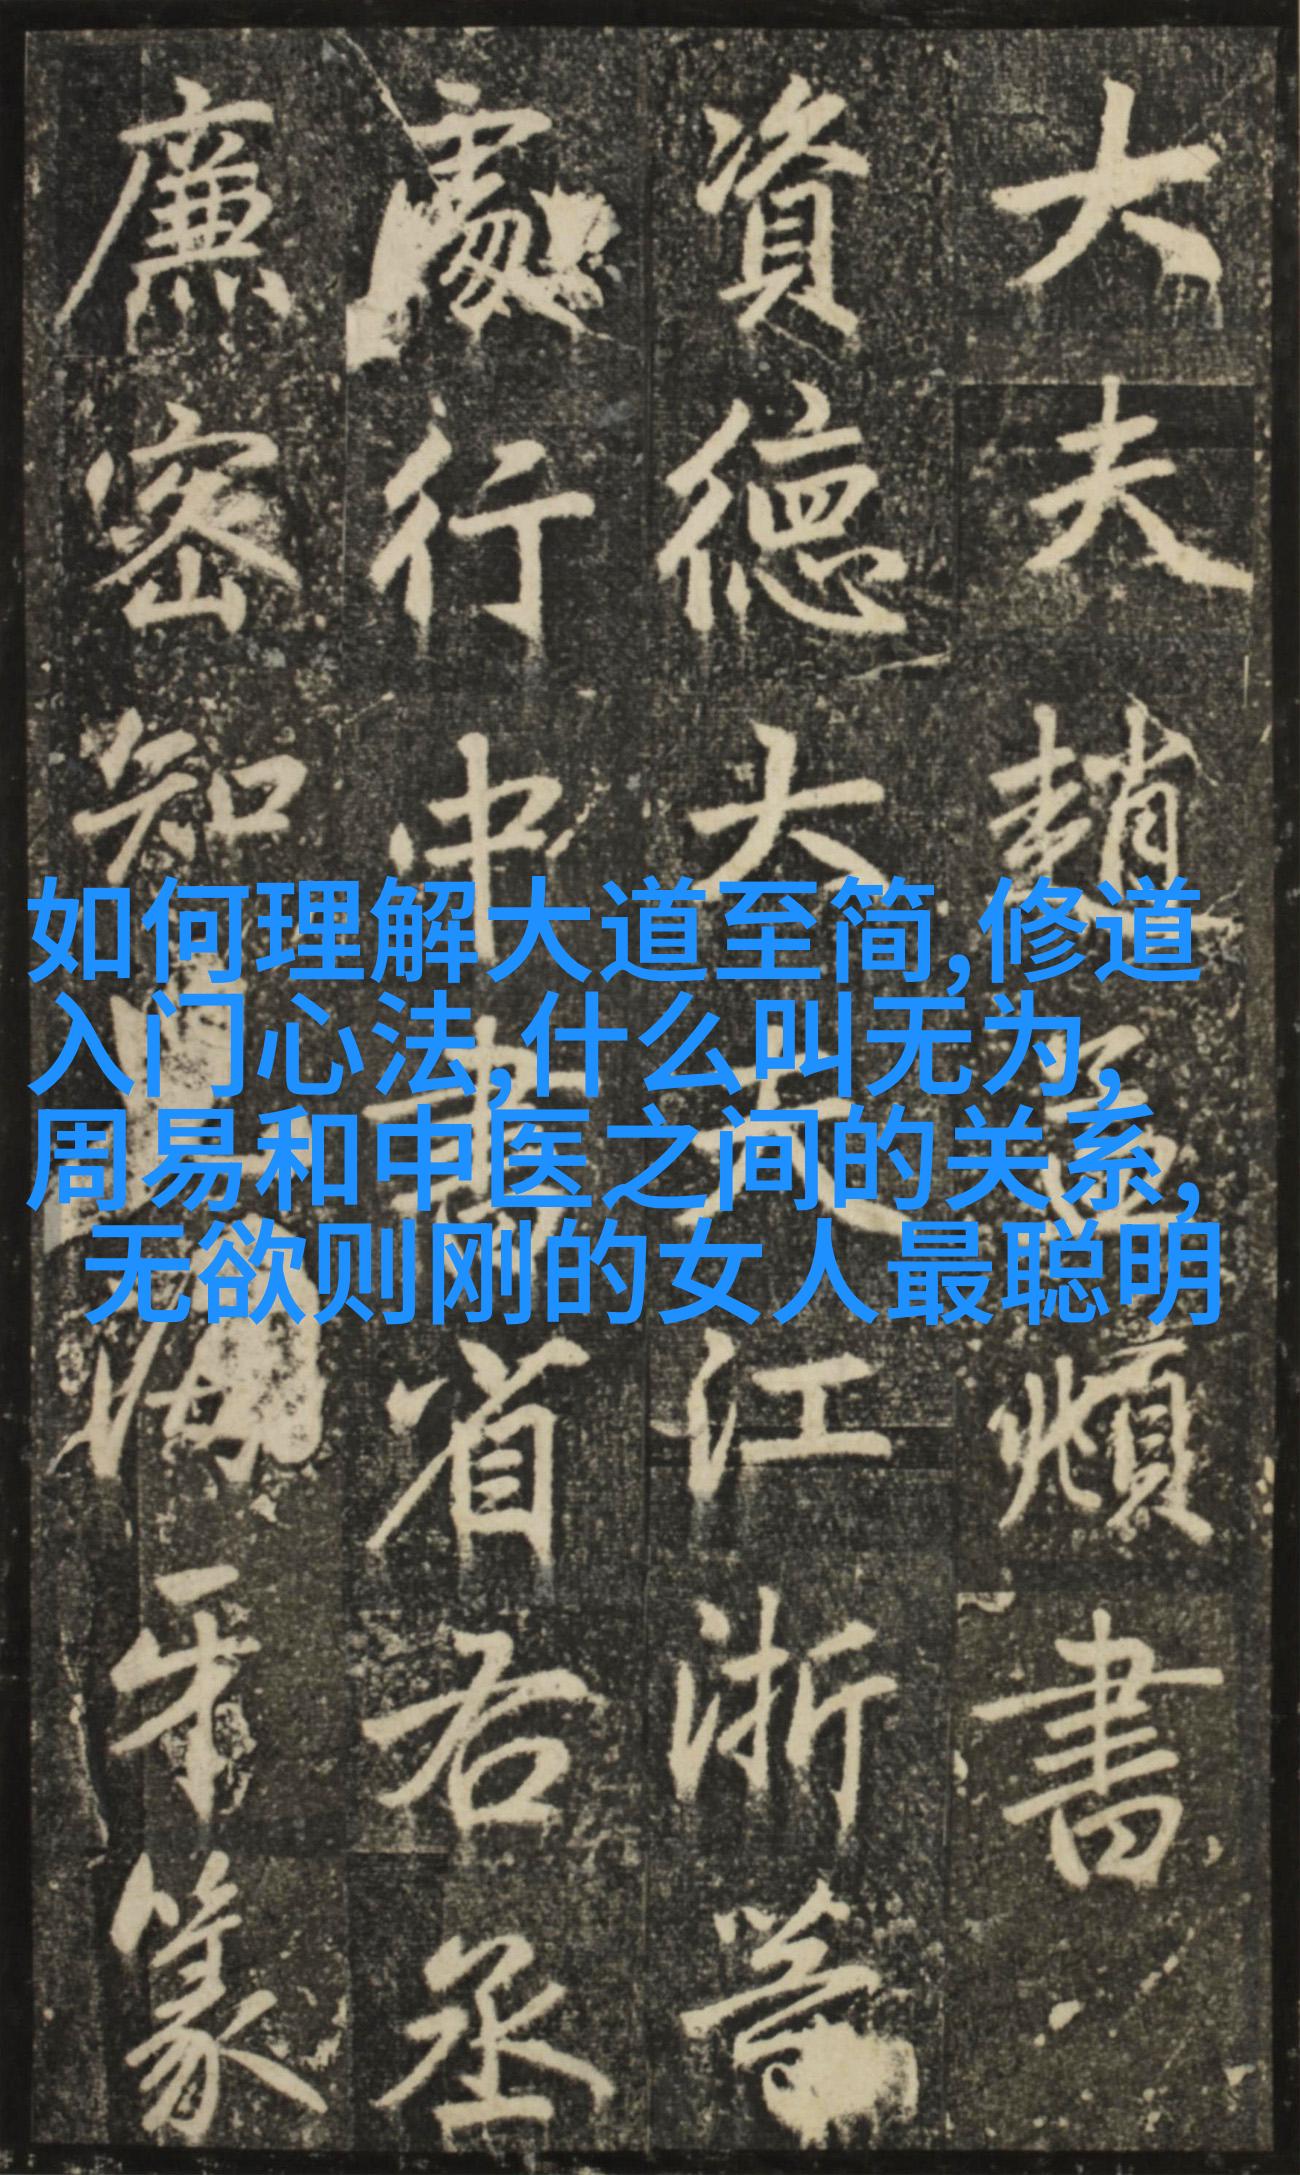 大夫趙孟頫書
資德大夫江浙等
處行中書省右丞
廉密知海牙篆
如何理解大道至简,修道
入门心法,什么叫无为,
周易和中医之间的关系,
无欲则刚的女人最聪明